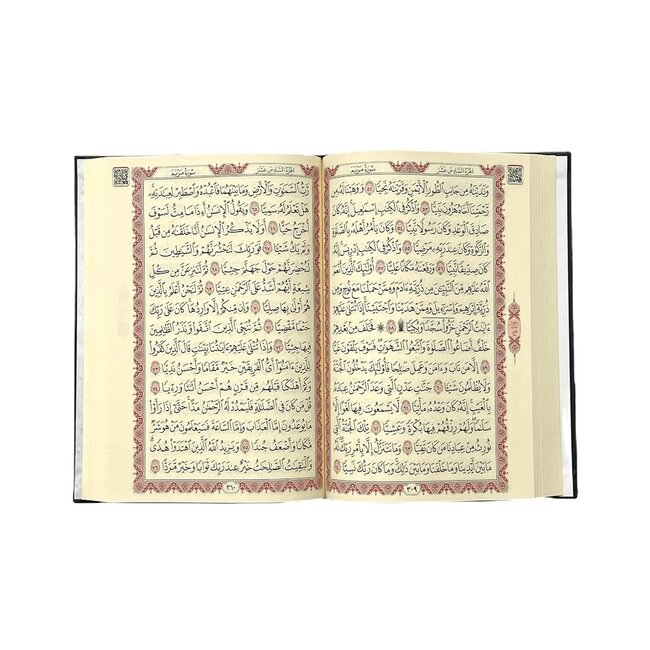 الجزء السادس عشر
سورة مريم
وَنَٰدَيْنَٰهُ مِن جَانِبِ ٱلطُّورِ ٱلْأَيْمَنِ وَقَرَّبْنَٰهُ نَجِيًّا ٥٢ وَوَهَبْنَا لَهُۥ مِن
رَّحْمَتِنَآ أَخَاهُ هَٰرُونَ نَبِيًّا ٥٣ وَٱذْكُرْ فِى ٱلْكِتَٰبِ إِسْمَٰعِيلَ إِنَّهُۥ كَانَ
صَادِقَ ٱلْوَعْدِ وَكَانَ رَسُولًا نَّبِيًّا ٥٤ وَكَانَ يَأْمُرُ أَهْلَهُۥ بِٱلصَّلَوٰةِ
وَٱلزَّكَوٰةِ وَكَانَ عِندَ رَبِّهِۦ مَرْضِيًّا ٥٥ وَٱذْكُرْ فِى ٱلْكِتَٰبِ إِدْرِيسَ إِنَّهُۥ
كَانَ صِدِّيقًا نَّبِيًّا ٥٦ وَرَفَعْنَٰهُ مَكَانًا عَلِيًّا ٥٧ أُو۟لَٰٓئِكَ ٱلَّذِينَ أَنْعَمَ
ٱللَّهُ عَلَيْهِم مِّنَ ٱلنَّبِيِّـۧنَ مِن ذُرِّيَّةِ ءَادَمَ وَمِمَّنْ حَمَلْنَا مَعَ نُوحٍ وَمِن
ذُرِّيَّةِ إِبْرَٰهِيمَ وَإِسْرَٰٓءِيلَ وَمِمَّنْ هَدَيْنَا وَٱجْتَبَيْنَآ إِذَا تُتْلَىٰ عَلَيْهِمْ
ءَايَٰتُ ٱلرَّحْمَٰنِ خَرُّوا۟ سُجَّدًا وَبُكِيًّا ۩ ٥٨ ۞ فَخَلَفَ مِنۢ بَعْدِهِمْ
خَلْفٌ أَضَاعُوا۟ ٱلصَّلَوٰةَ وَٱتَّبَعُوا۟ ٱلشَّهَوَٰتِ فَسَوْفَ يَلْقَوْنَ غَيًّا
٥٩ إِلَّا مَن تَابَ وَءَامَنَ وَعَمِلَ صَٰلِحًا فَأُو۟لَٰٓئِكَ يَدْخُلُونَ ٱلْجَنَّةَ
وَلَا يُظْلَمُونَ شَيْـًٔا ٦٠ جَنَّٰتِ عَدْنٍ ٱلَّتِى وَعَدَ ٱلرَّحْمَٰنُ عِبَادَهُۥ
بِٱلْغَيْبِ إِنَّهُۥ كَانَ وَعْدُهُۥ مَأْتِيًّا ٦١ لَّا يَسْمَعُونَ فِيهَا لَغْوًا إِلَّا
سَلَٰمًا وَلَهُمْ رِزْقُهُمْ فِيهَا بُكْرَةً وَعَشِيًّا ٦٢ تِلْكَ ٱلْجَنَّةُ ٱلَّتِى
نُورِثُ مِنْ عِبَادِنَا مَن كَانَ تَقِيًّا ٦٣ وَمَا نَتَنَزَّلُ إِلَّا بِأَمْرِ رَبِّكَ لَهُۥ
مَا بَيْنَ أَيْدِينَا وَمَا خَلْفَنَا وَمَا بَيْنَ ذَٰلِكَ وَمَا كَانَ رَبُّكَ نَسِيًّا ٦٤
٣٠٩
الجزء السادس عشر
سورة مريم
رَّبُّ ٱلسَّمَٰوَٰتِ وَٱلْأَرْضِ وَمَا بَيْنَهُمَا فَٱعْبُدْهُ وَٱصْطَبِرْ لِعِبَٰدَتِهِۦ
هَلْ تَعْلَمُ لَهُۥ سَمِيًّا ٦٥ وَيَقُولُ ٱلْإِنسَٰنُ أَءِذَا مَا مِتُّ لَسَوْفَ
أُخْرَجُ حَيًّا ٦٦ أَوَلَا يَذْكُرُ ٱلْإِنسَٰنُ أَنَّا خَلَقْنَٰهُ مِن قَبْلُ
وَلَمْ يَكُ شَيْـًٔا ٦٧ فَوَرَبِّكَ لَنَحْشُرَنَّهُمْ وَٱلشَّيَٰطِينَ ثُمَّ
لَنُحْضِرَنَّهُمْ حَوْلَ جَهَنَّمَ جِثِيًّا ٦٨ ثُمَّ لَنَنزِعَنَّ مِن كُلِّ
شِيعَةٍ أَيُّهُمْ أَشَدُّ عَلَى ٱلرَّحْمَٰنِ عِتِيًّا ٦٩ ثُمَّ لَنَحْنُ أَعْلَمُ بِٱلَّذِينَ
هُمْ أَوْلَىٰ بِهَا صِلِيًّا ٧٠ وَإِن مِّنكُمْ إِلَّا وَارِدُهَا كَانَ عَلَىٰ رَبِّكَ
حَتْمًا مَّقْضِيًّا ٧١ ثُمَّ نُنَجِّى ٱلَّذِينَ ٱتَّقَوا۟ وَّنَذَرُ ٱلظَّٰلِمِينَ
فِيهَا جِثِيًّا ٧٢ وَإِذَا تُتْلَىٰ عَلَيْهِمْ ءَايَٰتُنَا بَيِّنَٰتٍ قَالَ ٱلَّذِينَ كَفَرُوا۟
لِلَّذِينَ ءَامَنُوٓا۟ أَىُّ ٱلْفَرِيقَيْنِ خَيْرٌ مَّقَامًا وَأَحْسَنُ نَدِيًّا ٧٣
وَكَمْ أَهْلَكْنَا قَبْلَهُم مِّن قَرْنٍ هُمْ أَحْسَنُ أَثَٰثًا وَرِءْيًا ٧٤
قُلْ مَن كَانَ فِى ٱلضَّلَٰلَةِ فَلْيَمْدُدْ لَهُ ٱلرَّحْمَٰنُ مَدًّا حَتَّىٰٓ إِذَا رَأَوْا۟
مَا يُوعَدُونَ إِمَّا ٱلْعَذَابَ وَإِمَّا ٱلسَّاعَةَ فَسَيَعْلَمُونَ مَنْ هُوَ شَرٌّ
مَّكَانًا وَأَضْعَفُ جُندًا ٧٥ وَيَزِيدُ ٱللَّهُ ٱلَّذِينَ ٱهْتَدَوْا۟ هُدًى
وَٱلْبَٰقِيَٰتُ ٱلصَّٰلِحَٰتُ خَيْرٌ عِندَ رَبِّكَ ثَوَابًا وَخَيْرٌ مَّرَدًّا ٧٦
٣١٠